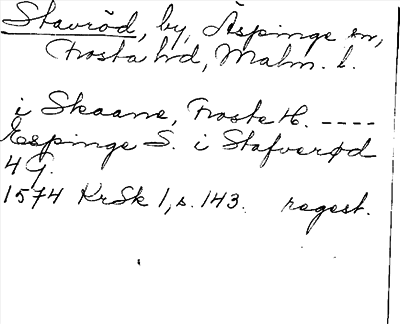 Stavröd, by, Äspinge sn,
Frosta hd, Malm. l.
i Skaane, Froste H. ----
Espinge S. i Stafverød
4 G.
1574 KrSk 1, s. 143. regest.